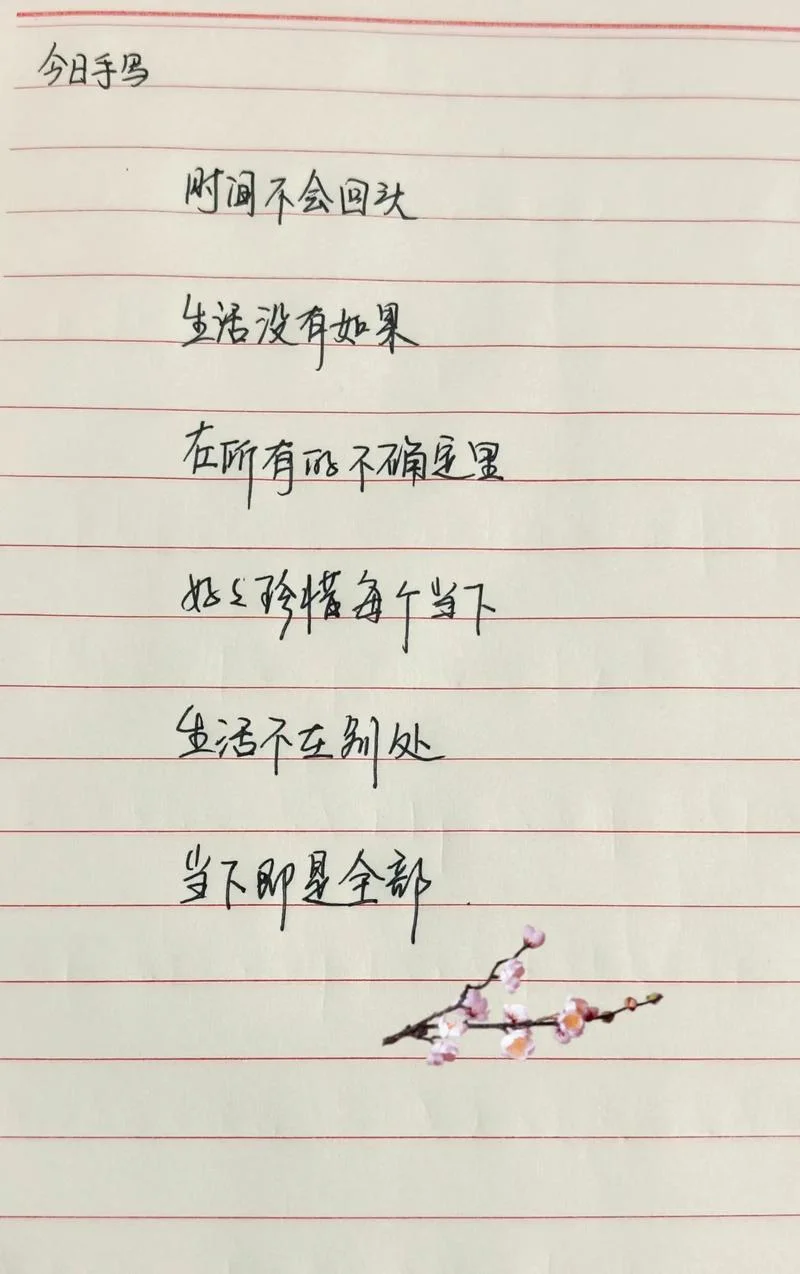 今日手写
时间不会回头
生活没有如果
在所有的不确定里
好好珍惜每个当下
生活不在别处
当下即是全部.